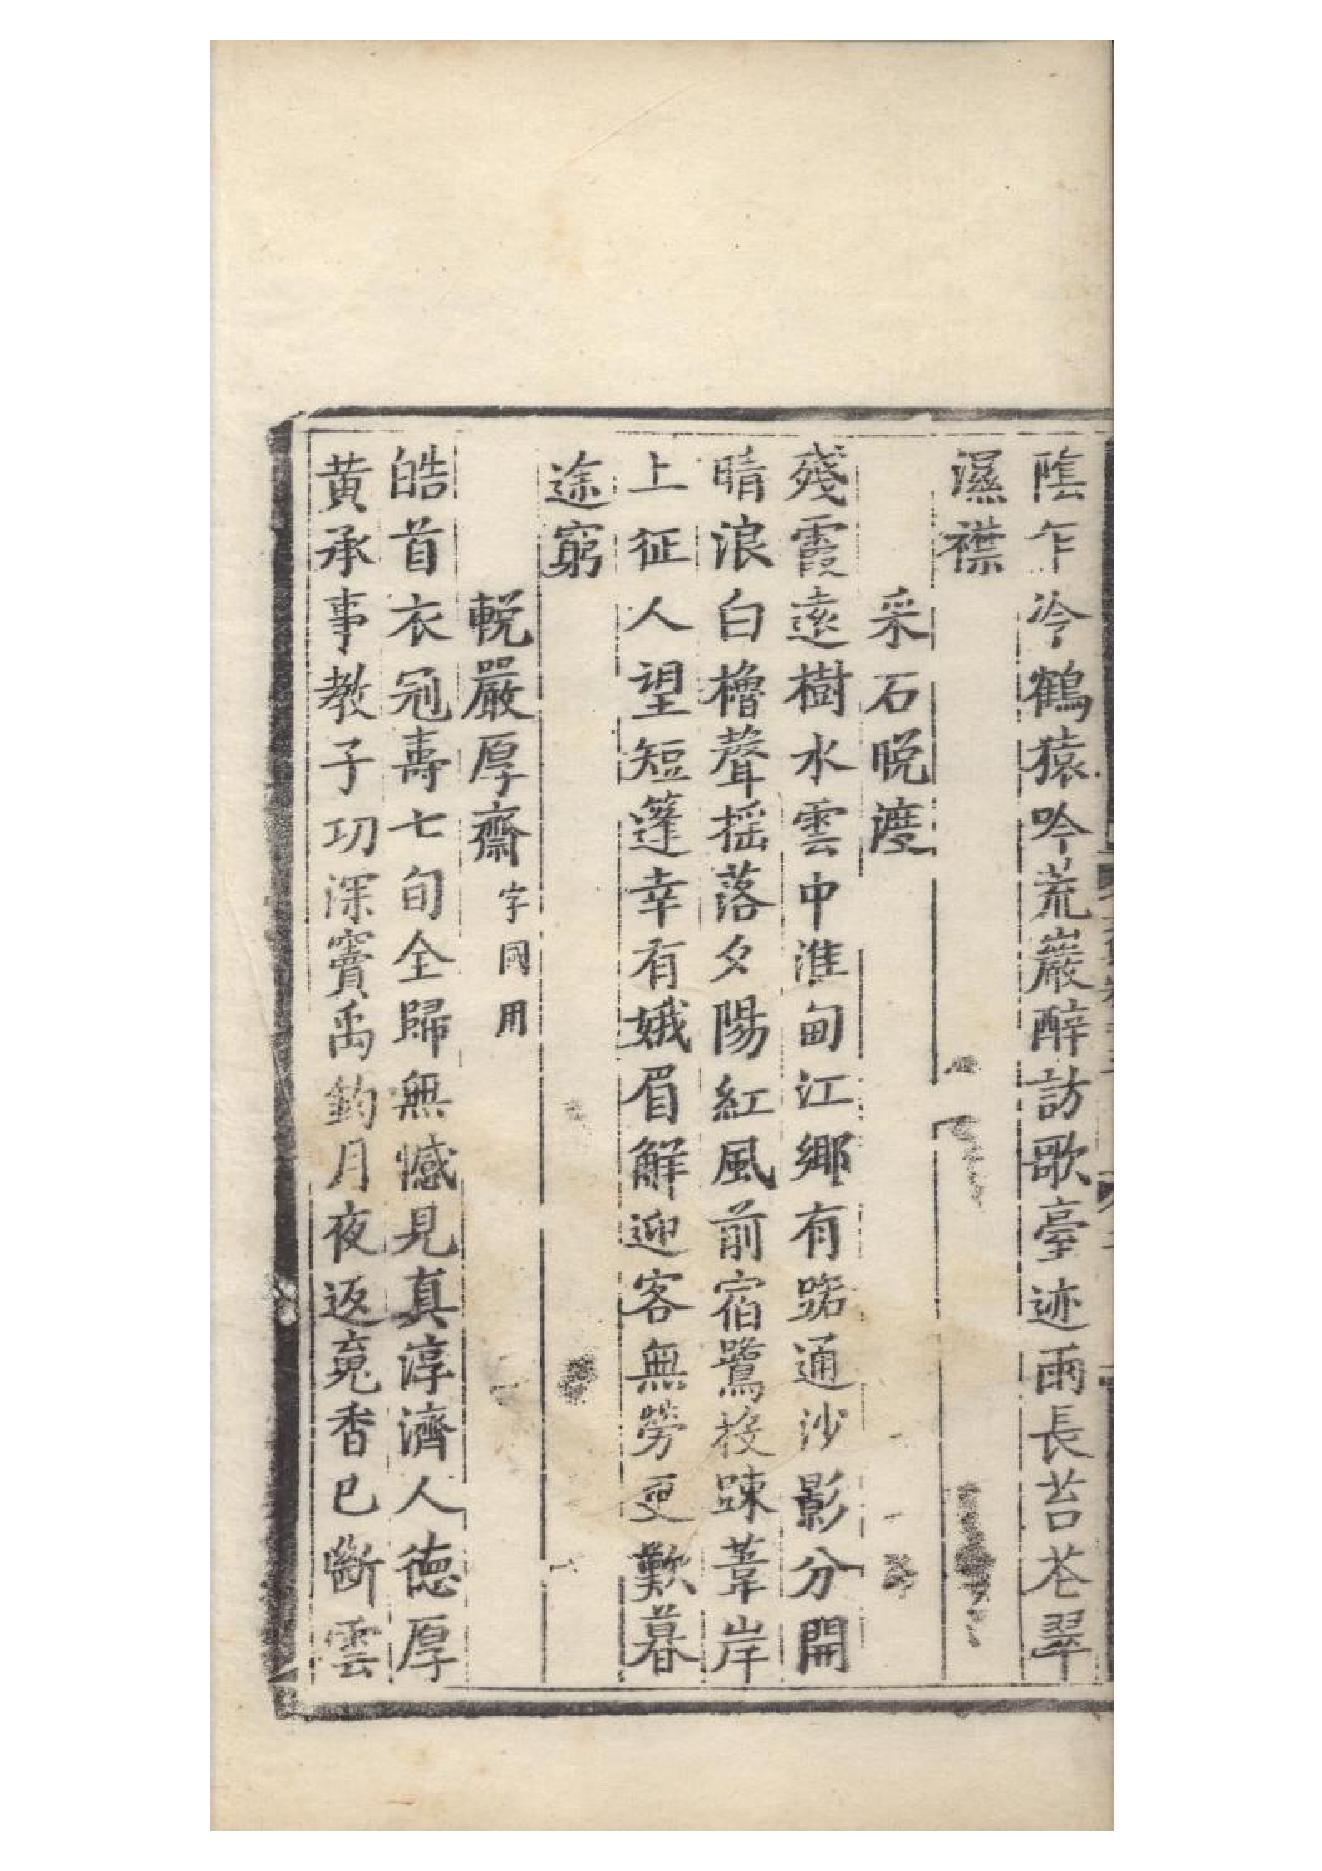 陰乍冷鶴猿吟荒巖醉訪歌臺迹雨長苔花翠
濕襟
采石晚渡
殘霞遠樹水雲中淮甸江鄉有路通沙影分開
晴浪白櫓聲揺落夕陽紅風前宿鷺投踈葦岸
上征人望短篷幸有娥眉解迎客無勞更歎暮
途窮
輓嚴厚齋字國用
皓首衣冠壽七旬全歸無憾見真淳濟人德厚
黃承事教子功深竇禹鈞月夜返䰟香已斷雲